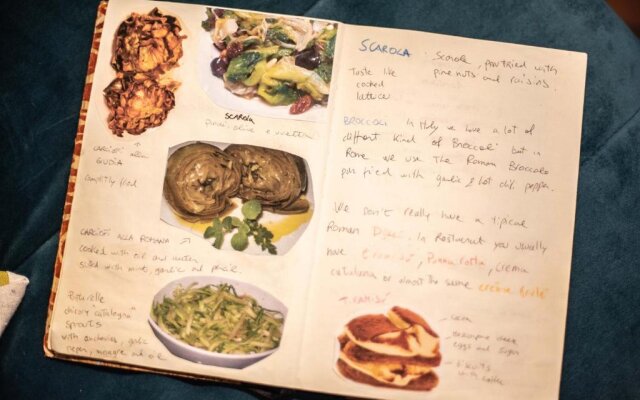 SCAROLA
pinoli, olive e uvetta
CARCIOFI alla
GIUDIA
CARCIOFI ALLA ROMANA
cooked with oil and water
with mint, garlic and
Puntarelle
sprouts
with anchovies, garlic
vinegar and oil
SCAROLA : Scarola, pan fried with
Taste like pine nuts and raisins.
cooked
lettuce
BROCCOLI In Italy we have a lot of
different kind of Broccoli but in
Rome we use the Roman Broccolo
pan fried with garlic & hot chili pepper.
We don't really have a tipical
Roman In Restaurant you usually
have tiramisù, Panna Cotta, Crema
catalana or almost the same creme
TIRAMISÙ
eggs and sugar
with coffee